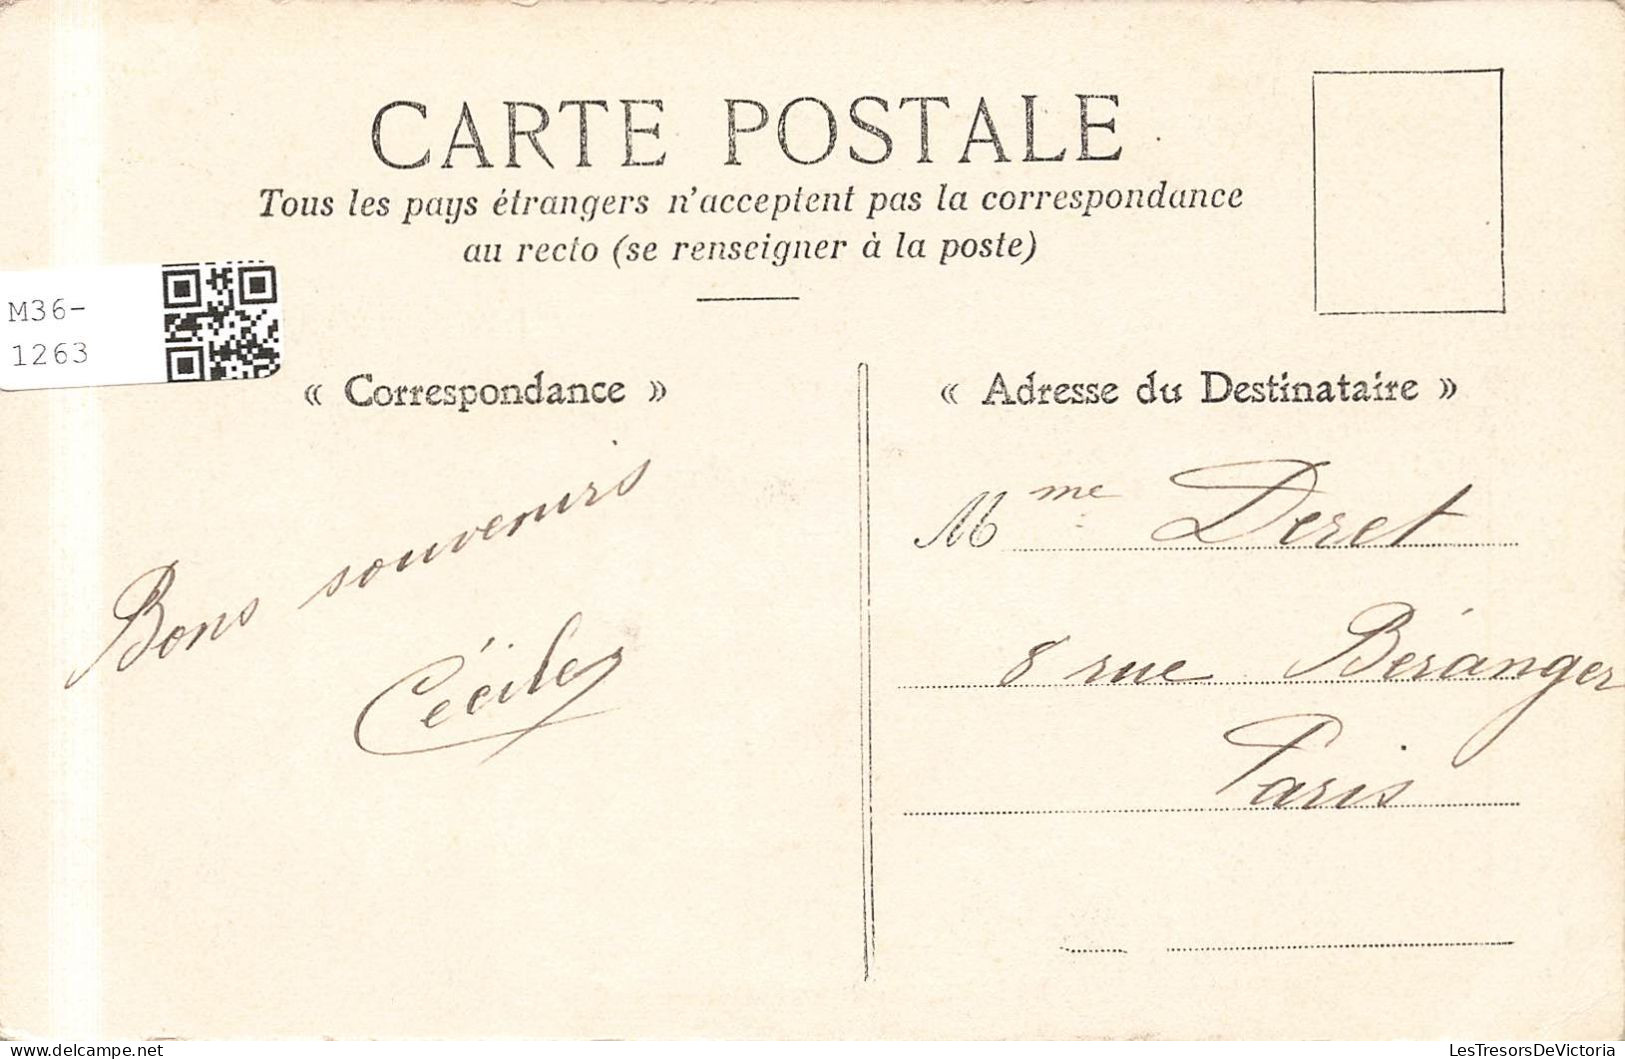 CARTE POSTALE
Tous les pays étrangers n'acceptent pas la correspondance
au recto (se renseigner à la poste)
M36-
1263
« Correspondance »
Bons souvenirs
Cécile
« Adresse du Destinataire »
Mme Deret
8 rue Béranger
Paris
LesTresorsDeVictoria